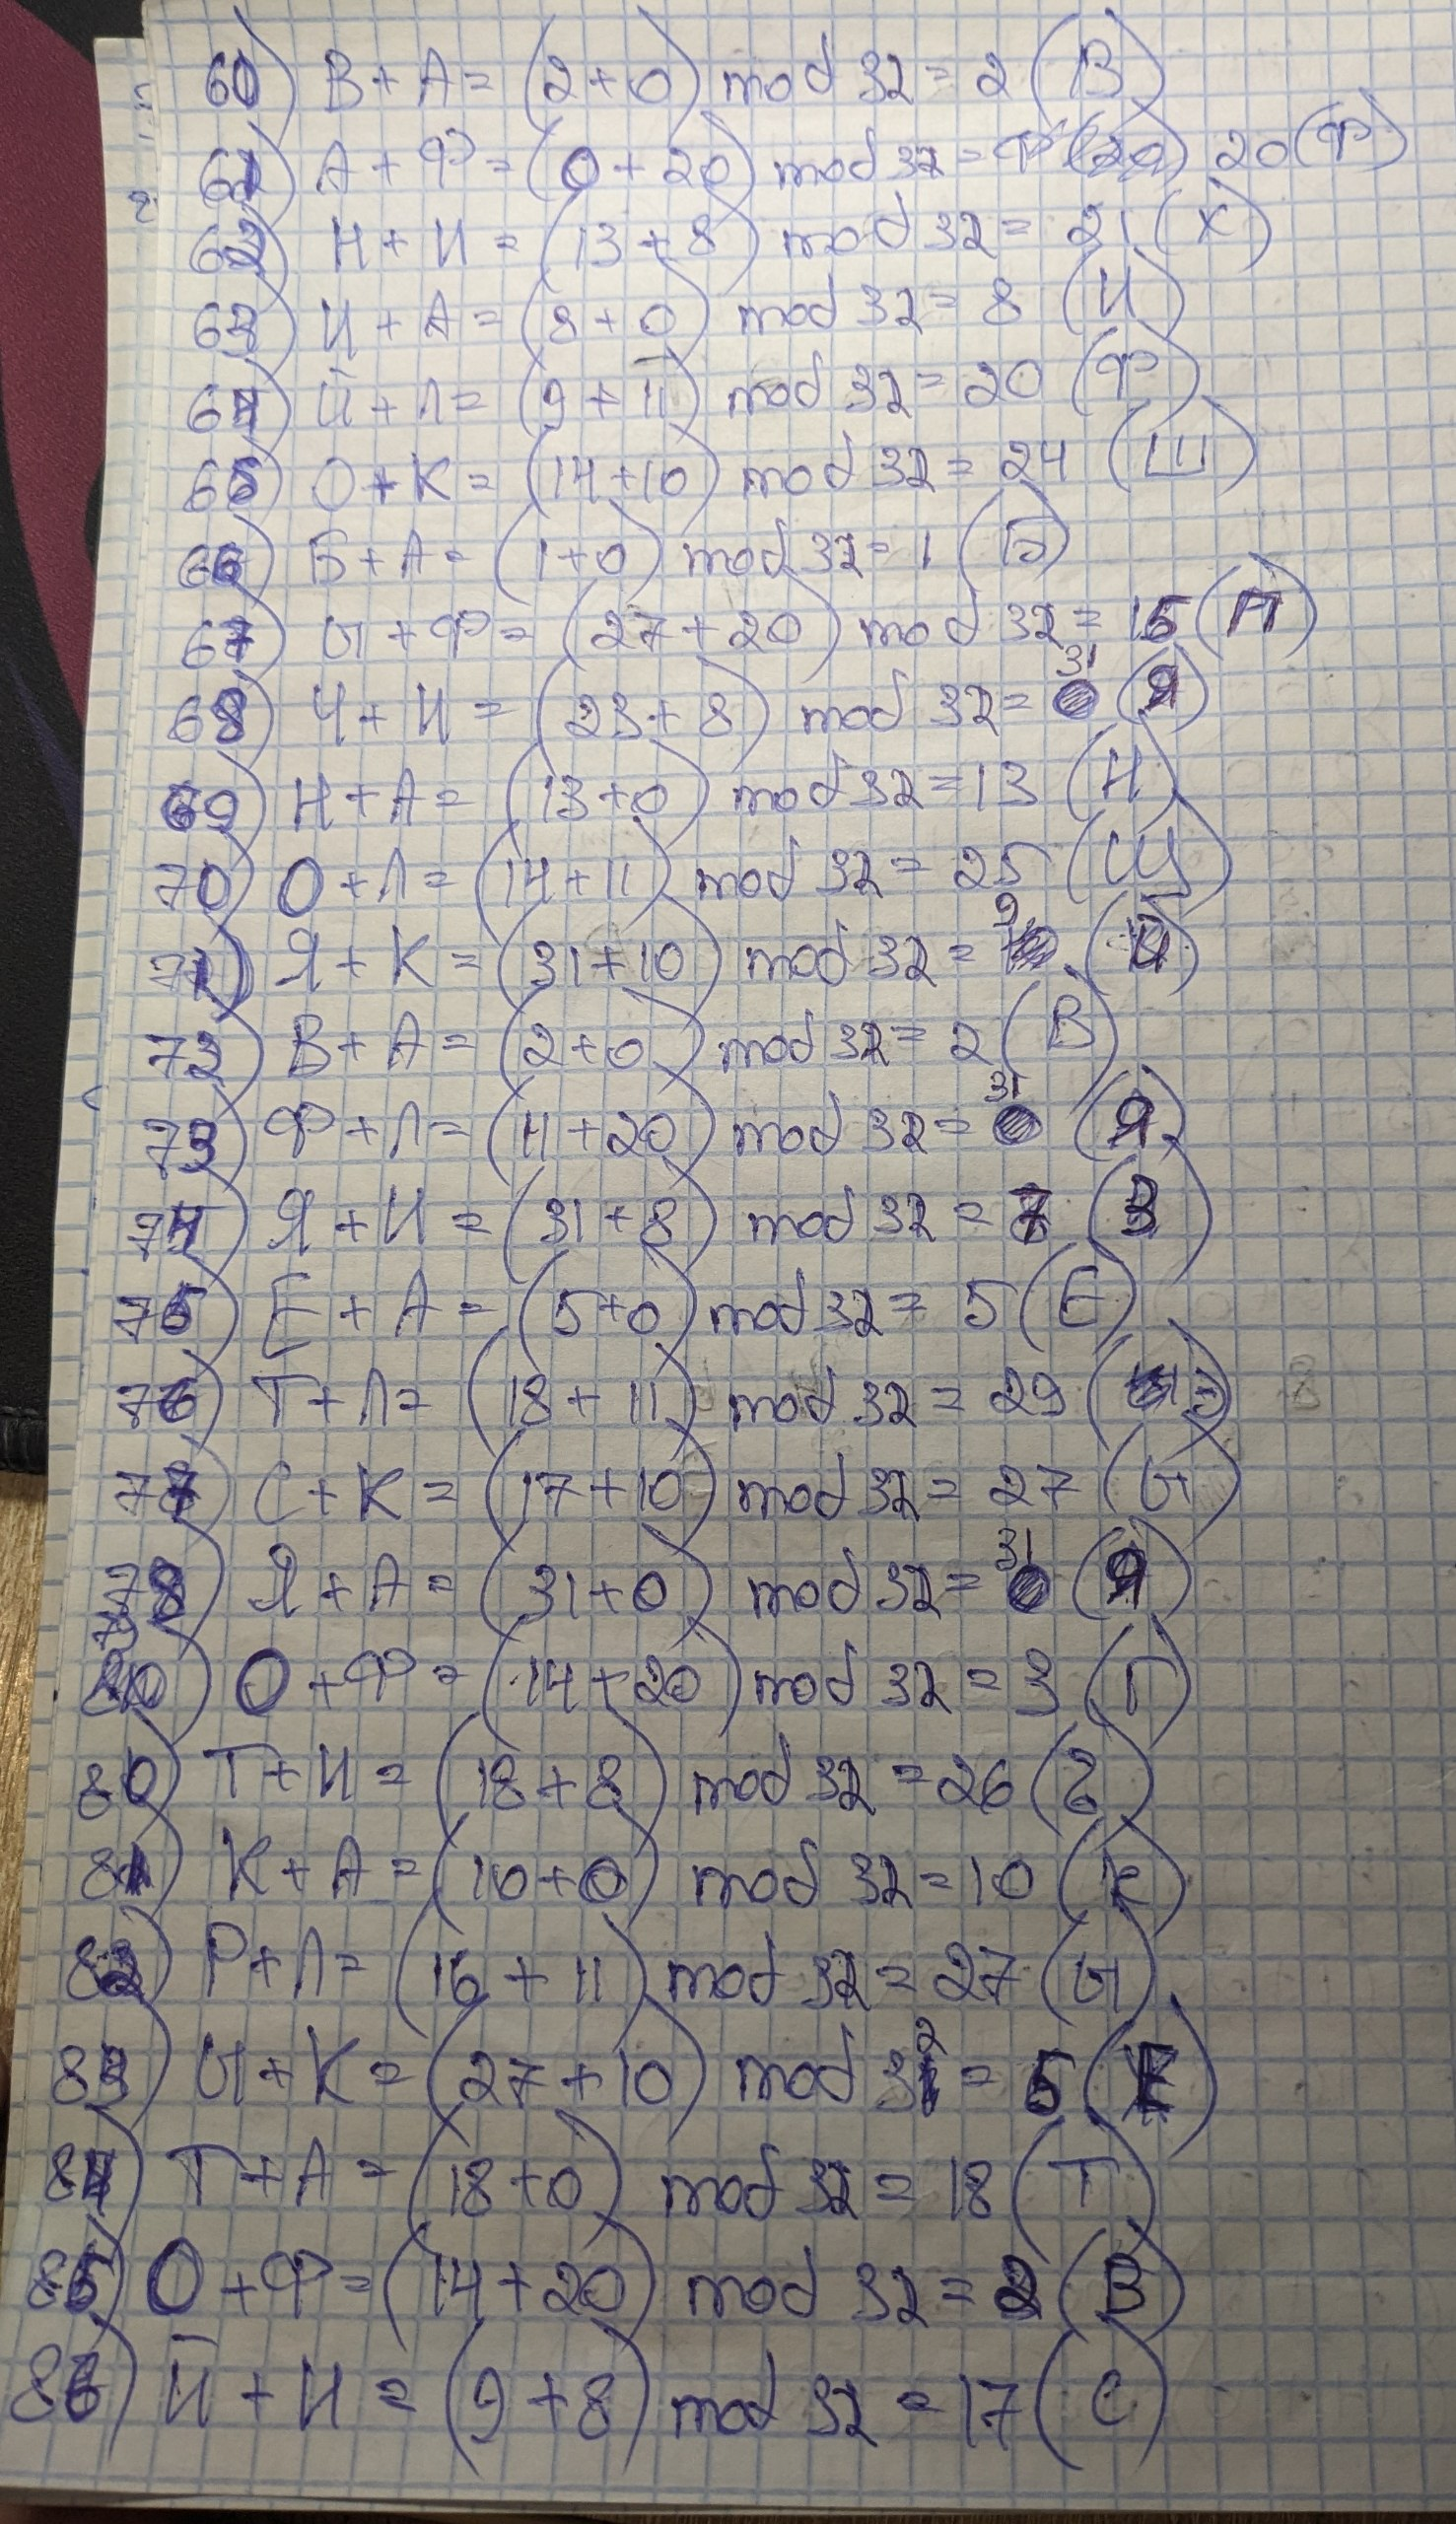 60) В + А = (2 + 0) mod 32 = 2 (В)
61) А + Ф = (0 + 20) mod 32 = Ф 20 (Ф)
62) Н + И = (13 + 8) mod 32 = 21 (Х)
63) И + А = (8 + 0) mod 32 = 8 (И)
64) Й + Л = (9 + 11) mod 32 = 20 (Ф)
65) О + К = (14 + 10) mod 32 = 24 (Ш)
66) Б + А = (1 + 0) mod 32 = 1 (Б)
67) Ы + Ф = (27 + 20) mod 32 = 15 (П)
68) Ч + И = (23 + 8) mod 32 = 31 (Я)
69) Н + А = (13 + 0) mod 32 = 13 (Н)
70) О + Л = (14 + 11) mod 32 = 25 (Щ)
71) Я + К = (31 + 10) mod 32 = 9 (Й)
72) В + А = (2 + 0) mod 32 = 2 (В)
73) Ф + Л = (11 + 20) mod 32 = 31 (Я)
74) Я + И = (31 + 8) mod 32 = 7 (З)
75) Е + А = (5 + 0) mod 32 = 5 (Е)
76) Т + Л = (18 + 11) mod 32 = 29 (Э)
77) С + К = (17 + 10) mod 32 = 27 (Ы)
78) Я + А = (31 + 0) mod 32 = 31 (Я)
О + Ф = (14 + 20) mod 32 = 3 (Г)
80) Т + И = (18 + 8) mod 32 = 26
81) К + А = (10 + 0) mod 32 = 10 (К)
82) Р + Л = (16 + 11) mod 32 = 27 (Ы)
83) Ы + К = (27 + 10) mod 32 = 5 (Е)
84) Т + А = (18 + 0) mod 32 = 18 (Т)
85) О + Ф = (14 + 20) mod 32 = 2 (В)
86) Й + И = (9 + 8) mod 32 = 17 (С)